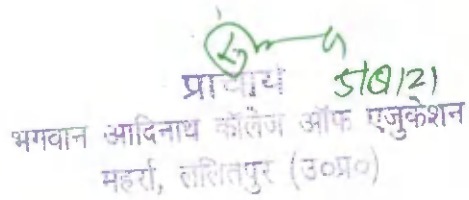 प्राचार्य 5/8/21
भगवान आदिनाथ कॉलेज ऑफ एजुकेशन
महर्रा, ललितपुर (उ०प्र०)